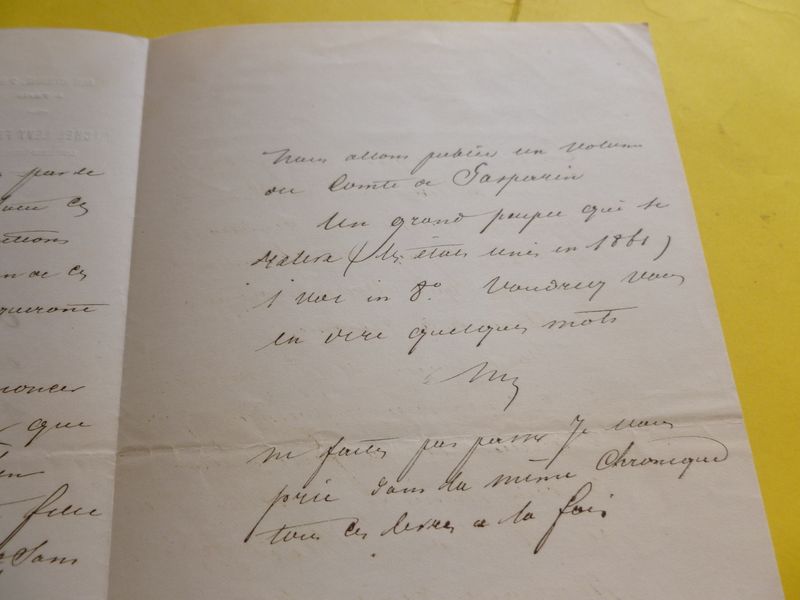 MICHEL LEVY F
par de
ces
de ces
noncer
que
fille
Sans
Nous allons publier un volume
du Comte de Gasparin
Un grand peuple qui se
relève (les états unis en 1861)
1 vol in 8º. Voudriez vous
en dire quelques mots
ne faites pas passer je vous
prie dans la même chronique
tous ces livres à la fois